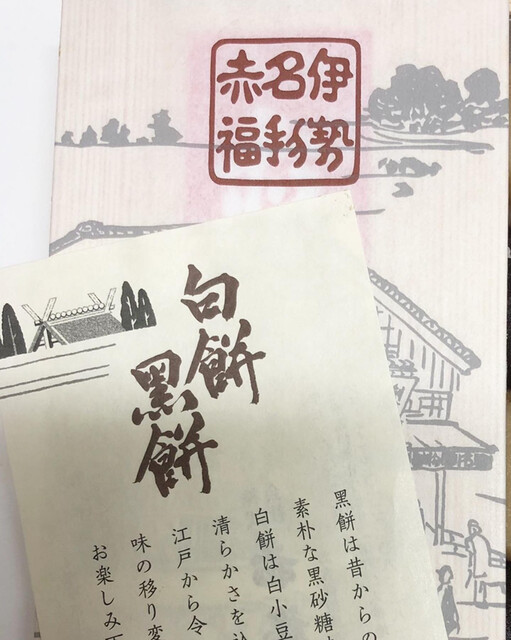 伊勢
名物
赤福
白餅
黒餅
黒餅は昔からの
素朴な黒砂糖
白餅は白小豆
清らかさを込
江戸から令
味の移り変
お楽しみ下